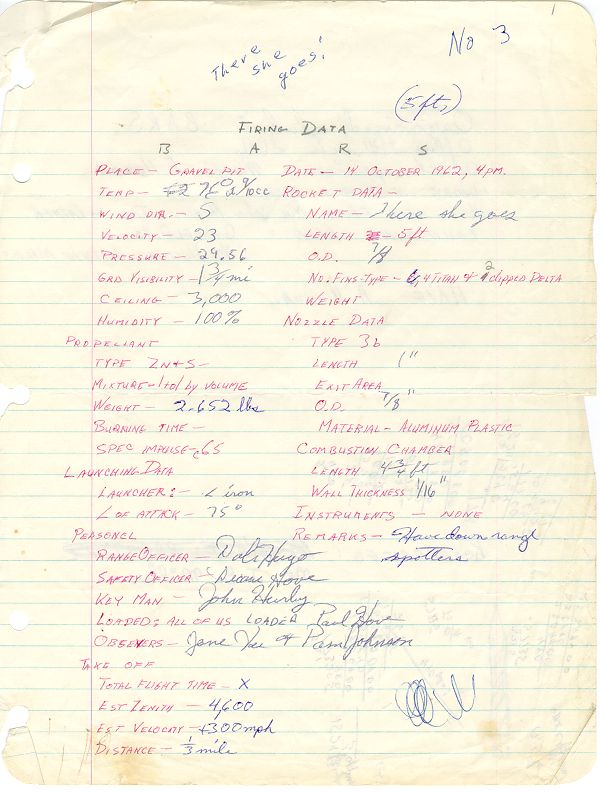 No 3
There she goes!
(5ft,)
FIRING DATA
B A R S
PLACE - GRAVEL PIT DATE - 14 OCTOBER 1962, 4 PM.
TEMP - 76° ROCKET DATA -
WIND DIR. - S NAME - There she goes
VELOCITY - 23 LENGTH - 5ft
PRESSURE - 29.56 O.D. 7/8
GRD VISIBILITY - 1 3/4 mi NO. FINS-TYPE - 4 TITAN & 2 CLIPPED DELTA
CEILING - 3,000 WEIGHT
HUMIDITY - 100% NOZZLE DATA
PROPELLANT TYPE 3b
TYPE ZN+S - LENGTH 1"
MIXTURE - 1 to 1 BY VOLUME EXIT AREA
WEIGHT - 2.652 lbs O.D. 7/8"
BURNING TIME - MATERIAL - ALUMINUM PLASTIC
SPEC IMPULSE - 65 COMBUSTION CHAMBER
LAUNCHING DATA LENGTH 4 3/4 ft
LAUNCHER: - ∠ iron WALL THICKNESS 1/16"
∠ OF ATTACK - 75° INSTRUMENTS - NONE
PERSONEL REMARKS - Have down range
RANGE OFFICER - spotters
SAFETY OFFICER - Hove
KEY MAN - John
LOADED: ALL OF US LOADER Paul Hove
OBSEVERS - Jane & Pam Johnson
TAKE OFF
TOTAL FLIGHT TIME - X
EST ZENITH - 4,600
EST VELOCITY - +300mph
DISTANCE - 1/3 mile